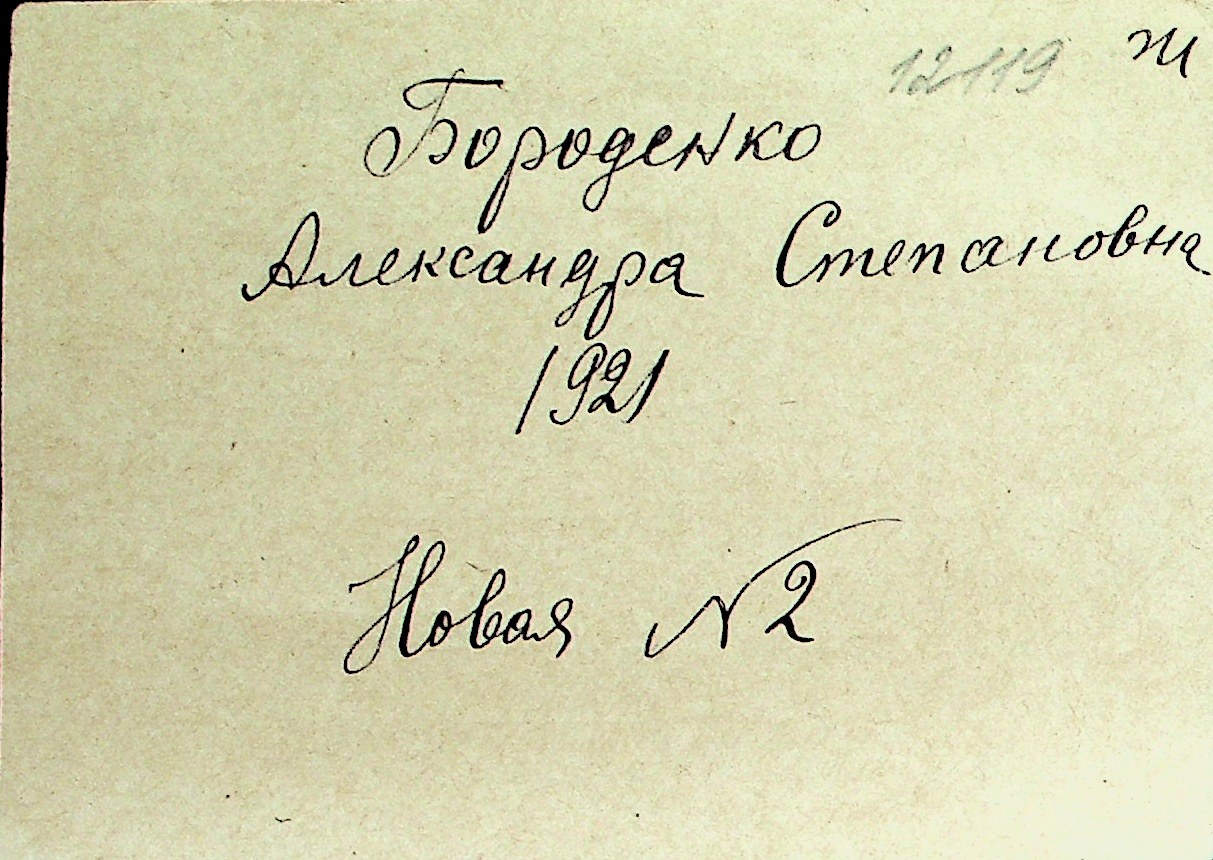 12119 ж
Бороденко
Александра Степановна
1921
Новая №2